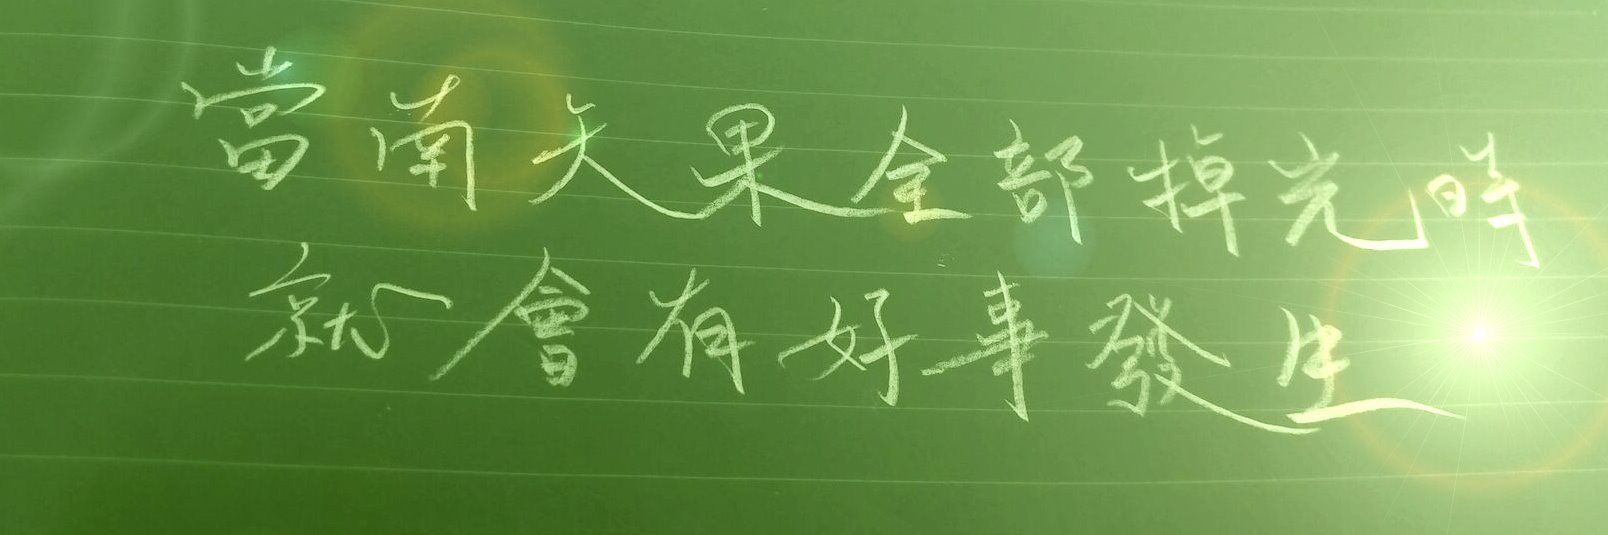 當南天果全部掉光時
就會有好事發生